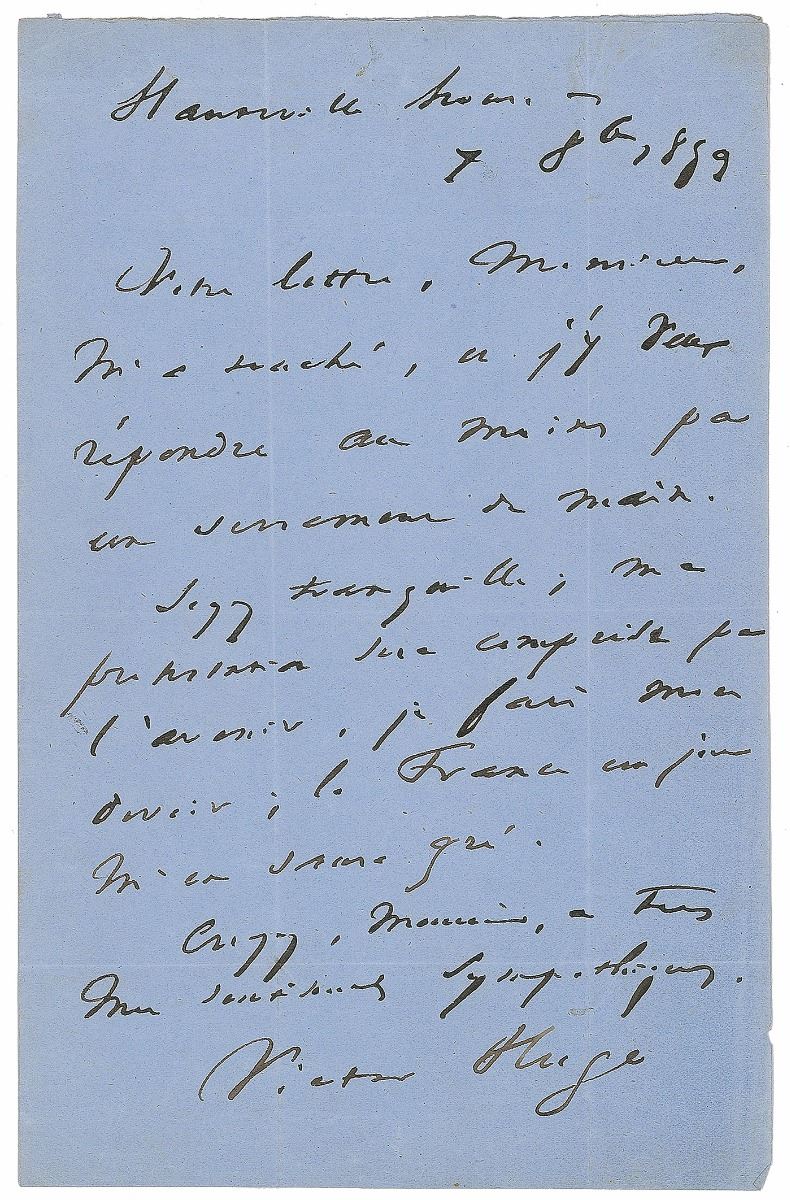 Hauteville house —
7 8bre 1859
Votre lettre, Monsieur,
m'a touché, et j'y veux
répondre au moins par
un serrement de main.
Soyez tranquille ; ma
protestation sera comprise par
l'avenir. je fais mon
devoir ; la France un jour
m'en saura gré.
Croyez, Monsieur, à tous
mes sentiments sympathiques.
Victor Hugo